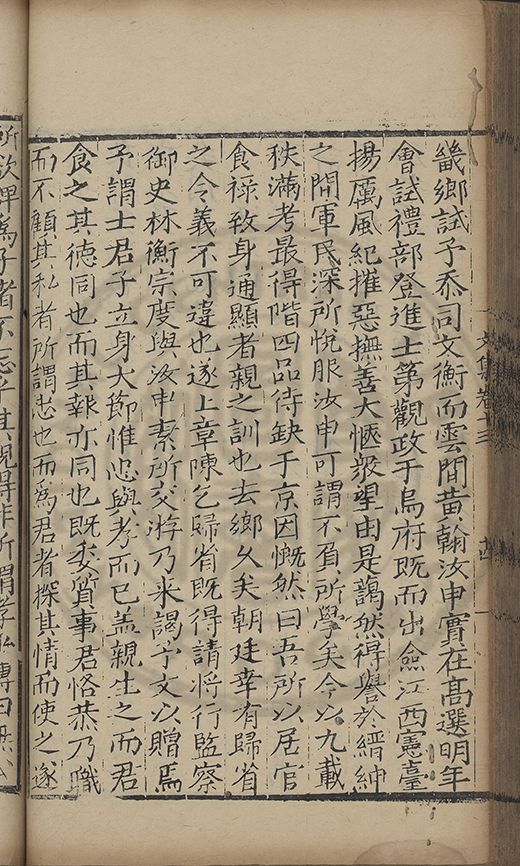 畿鄉試予忝司文衡而雲間黄翰汝申實在髙選明年
會試禮部登進士第觀政于烏府既而出僉江西憲臺
揚厲風紀摧惡撫善大愜衆望由是藹然得譽於縉紳
之間軍民深所悅服汝申可謂不負所學矣今以九載
秩滿考最得階四品待缺于京因慨然曰吾所以居官
食禄致身通顯者親之訓也去鄉久矣朝廷幸有歸省
之令義不可違也遂上章陳乞歸省既得請將行監察
御史林衡宗度與汝申素所交游乃来謁予文以贈焉
予謂士君子立身大節惟忠與孝而已盖親生之而君
食之其德同也而其報亦同也既委質事君恪恭乃職
而不顧其私者所謂忠也而為君者探其情而使之遂